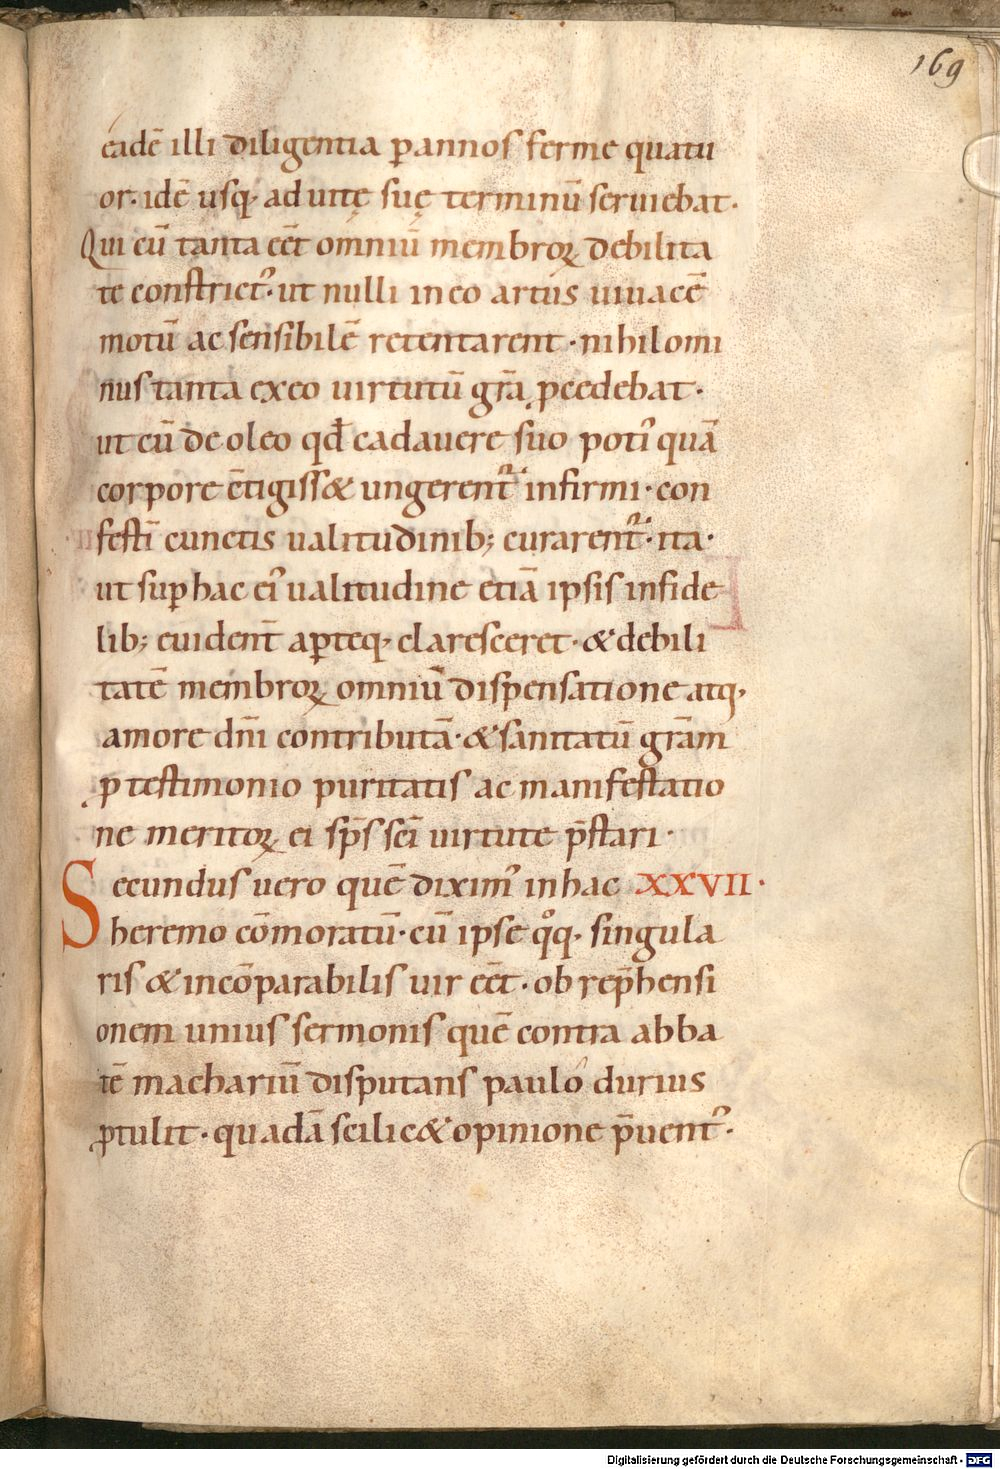 169
eadē illi diligentia ꝑ annos ferme quatu
or. idē usq; ad uitę suę terminū seruiebat.
Qui cū tanta eēt omniū membroꝝ debilita
te constrict᾽. ut nulli in eo artus uiuacē
motū ac sensibilē retentarent. nihilomi
nus tanta ex eo uirtutū gr̄a ꝓcedebat.
ut cū de oleo qđ cadauere suo poti᾽ quā
corpore ētigiss& ungerent᷑ infirmi. con
festī cunctis ualitudinib; curarent᷑. ita.
ut suꝑ hac ei᾽ ualitudine etiā ipsis infide
lib; euident̄ aꝑteq; claresceret. & debili
tatē membroꝝ omniū dispensatione atq;
amore dn̄i contributā. & sanitatū grām
ꝓ testimonio puritatis ac manifestatio
ne meritoꝝ ei sp̄s sc̄i uirtute p̄stari.
Secundus uero quē dixim᾽ in hac XXVII.
heremo cōmoratū. cū ipse qͦq; singula
ris & incōparabilis uir eēt. ob rep̄hensi
onem unius sermonis quē contra abba
tē machariū disputans paulo durius
ꝓtulit. quadā scilic& opinione p̄uent᾽.
Digitalisierung gefördert durch die Deutsche Forschungsgemeinschaft - DFG